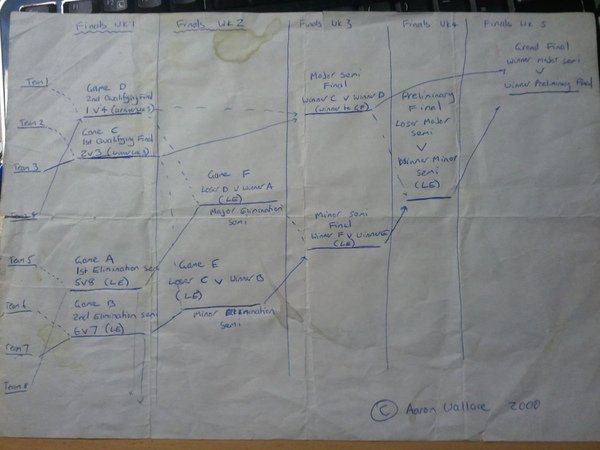 Finals Wk 1
Finals Wk 2
Finals Wk 3
Finals Wk 4
Finals Wk 5
Team 1
Team 2
Team 3
Team 5
Team 6
Team 7
Team 8
Game D
2nd Qualifying Final
1 v 4
Game C
1st Qualifying Final
2 v 3
Game A
1st Elimination Semi
5v8 (LE)
Game B
2nd Elimination Semi
6v7 (LE)
Game F
Loser D v Winner A
(LE)
Major Elimination
Semi
Game E
Loser C v Winner B
(LE)
Minor Elimination
Semi
Major Semi
Final
Winner C v Winner D
(Winner to GF)
Minor Semi
Final
Winner F v Winner E
(LE)
Preliminary
Final
Loser Major
Semi
v
Winner Minor
Semi
(LE)
Grand Final
Winner Major Semi
v
Winner Preliminary Final
© Aaron Wallace 2000